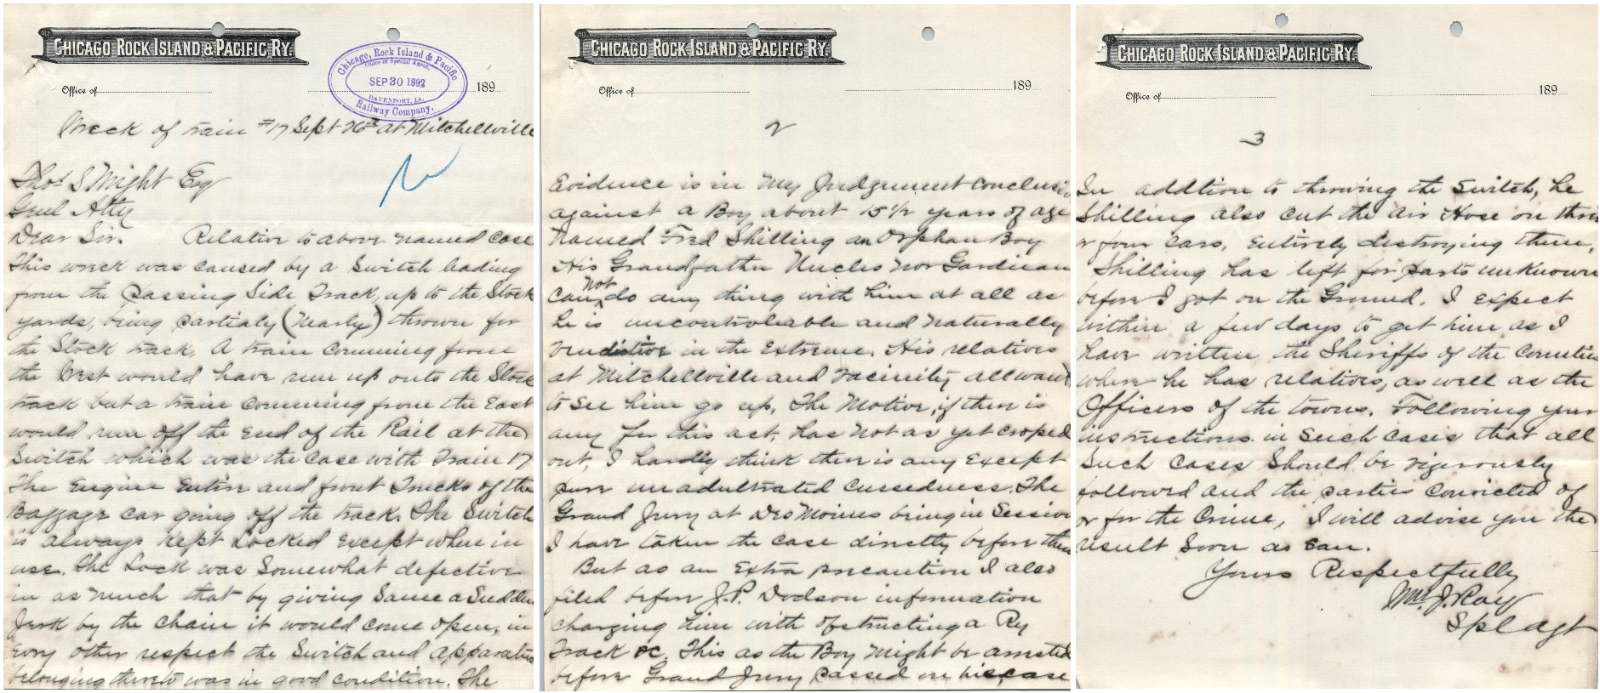 CHICAGO ROCK ISLAND & PACIFIC RY.
Chicago, Rock Island & Pacific
Office of Special Agent.
SEP 30 1892
DAVENPORT, IA.
Railway Company.
Office of 189
Wreck of train #17 Sept 26th at Mitchellville
Thos S Wright Esq
Genl Atty
Dear Sir. Relative to above named case
This wreck was caused by a Switch leading
from the passing Side Track, up to the Stock
yards, being partialy (Nearly) thrown for
the Stock track. A train Comming from
the West would have run up onto the Stock
track but a train Comming from the East
would run off the End of the Rail at the
Switch which was the Case with Train 17
The Engine Entire and front Trucks of the
Baggage car going off the track. The Switch
is always kept Locked Except when in
use. The Lock was Somewhat defective
in as much that by giving Same a Sudden
Jerk by the chain it would come open, in
Every other respect the Switch and apparatus
belonging thereto was in good condition. The
CHICAGO ROCK ISLAND & PACIFIC RY.
Office of 189
2
Evidence is in my Judgement Conclusive
against a Boy about 15 1/2 years of age
Named Fred Shilling an Orphan Boy
His Grandfather Uncles nor Gardiean
Can Not do any thing with him at all as
he is uncontroleable and Naturally
Vendictive in the Extreme. His relatives
at Mitchellville and vacinity all want
to See him go up. The Motive, if there is
any for this act, has Not as yet croped
out, I hardly think there is any Except
pure unadultrated Cussedness. The
Grand Jury at Des Moines being in Session
I have taken the case directly before them
But as an Extra precaution I also
filed before J.P. Dodson information
charging him with obstructing a Ry
Track &c. This as the Boy Might be arrested
before Grand Jury passed on his case
CHICAGO ROCK ISLAND & PACIFIC RY.
Office of 189
3
In addtion to throwing the Switch, he
Shilling also cut the Air Hose on three
or four Cars, Entirely destroying them,
Shilling has left for parts unknown
before I got on the Ground. I Expect
within a few days to get him as I
have written the Sheriffs of the Counties
where he has relatives, as well as the
Officers of the towns. Following your
instructions in Such cases that all
Such Cases Should be vigerously
followed and the parties Convicted of
or for the Crime, I will advise you the
result Soon as Can.
Yours Respectfully
Wm J. Ray
Spl Agt